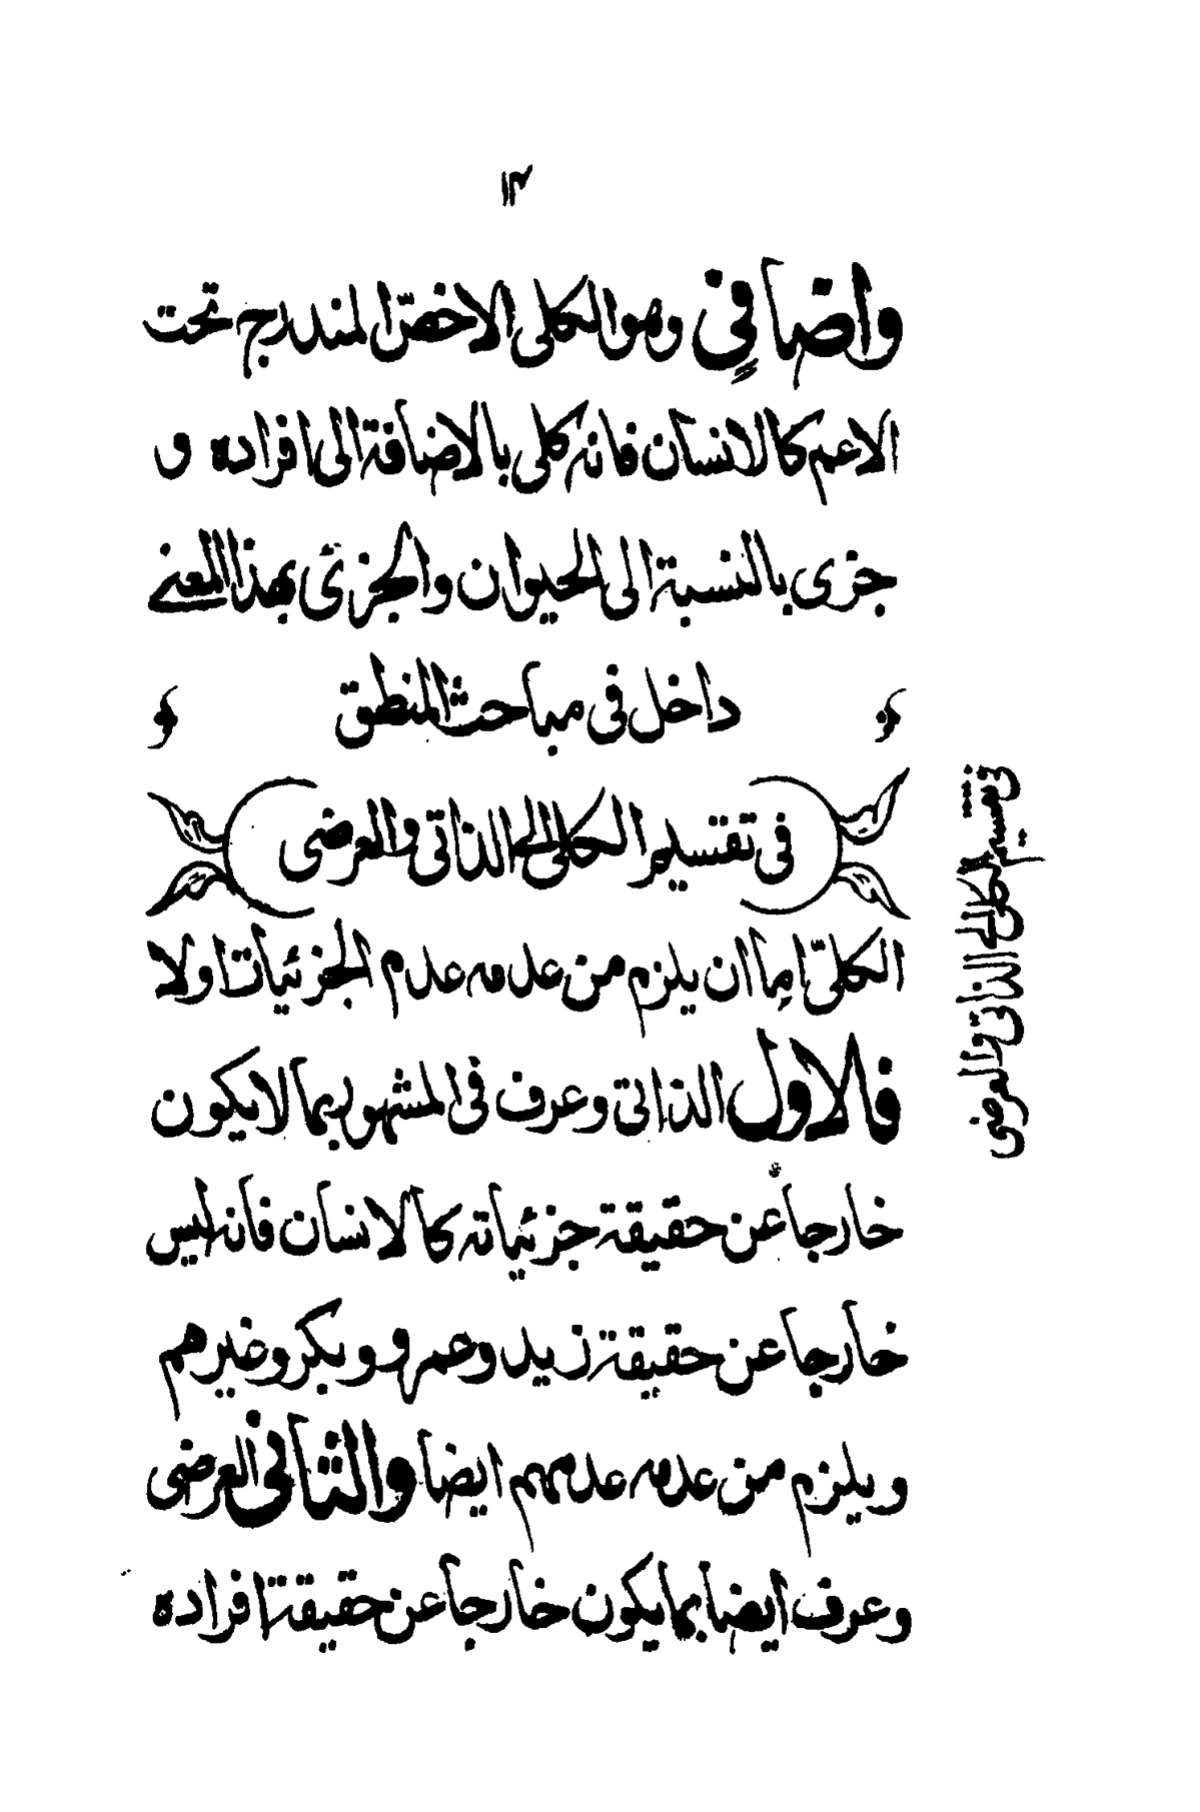 ١٣
واضافیٍ وهو الكلى الاخصّ المندرج تحت
الاعم كالانسان فانه كلى بالاضافة الى افراده و
جزى بالنسبة الى الحيوان والجزئى بهذا المعنے
داخل فى مباحث المنطق
فى تقسيم الكلى الى الذاتى والعرضى
الكلىّ اما ان يلزم من عدمه عدم الجزئيات اولا
فالاول الذاتى وعرف فى المشهور بما لايكون
خارجا عن حقيقة جزئياته كالانسان فانه ليس
خارجا عن حقيقة زيد وعمرو و بكر وغيرهم
ويلزم من عدمه عدمهم ايضا والثانى العرضى
وعرف ايضا بما يكون خارجا عن حقيقة افراده
فى تقسيم الكلى الے الذاتى والعرضى